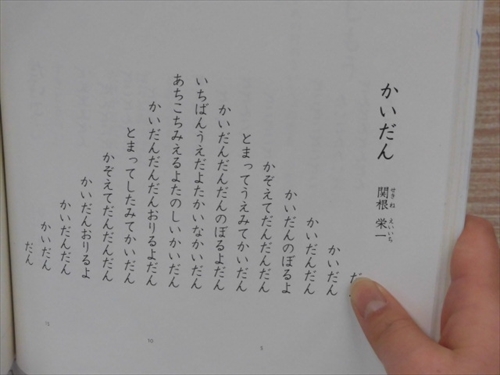 かいだん
関根 栄一
せきね えいいち
だ
かいだん
かいだんだん
かいだんのぼるよ
かぞえてだんだんだん
とまってうえみてかいだん
かいだんだんだんのぼるよだん
いちばんうえだよたかいなかいだん
あちこちみえるよたのしいかいだん
かいだんだんだんおりるよだん
とまってしたみてかいだん
かぞえてだんだんだん
かいだんおりるよ
かいだんだん
かいだん
だん